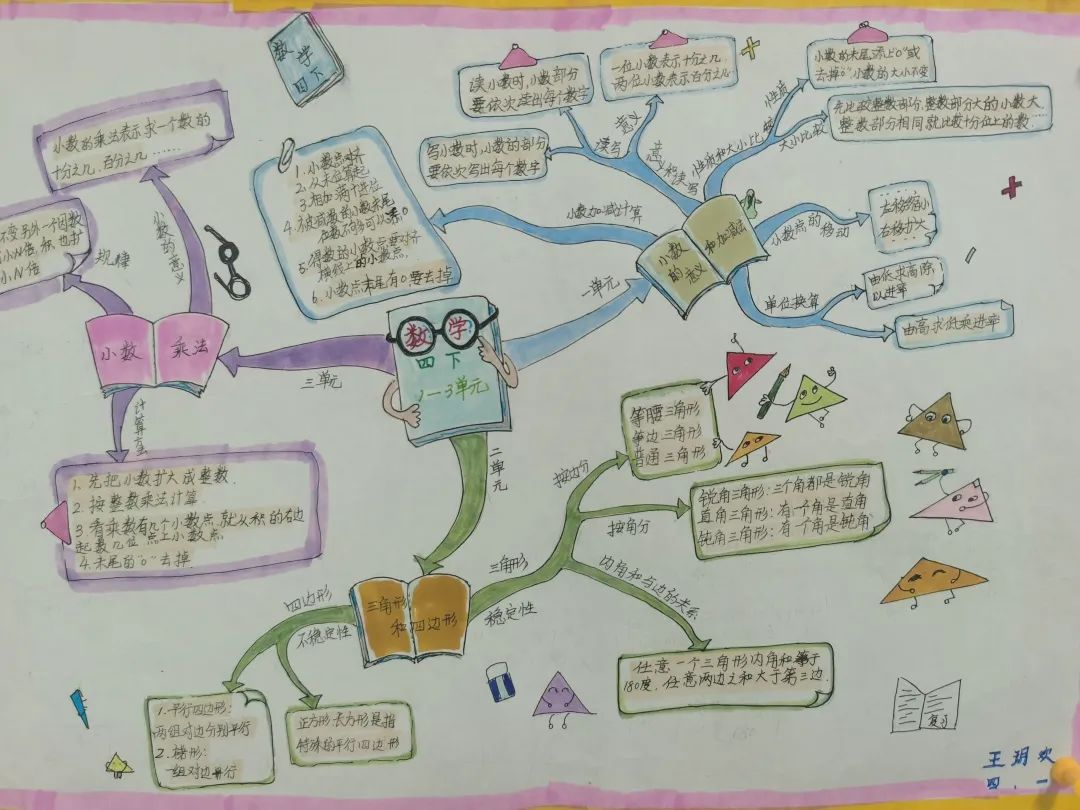 数学
四下
读小数时,小数部分
要依次读出每个数字
一位小数表示十分之几,
两位小数表示百分之几
小数的末尾添上"0"或
去掉"0"小数的大小不变
先比较整数部分,整数部分大的小数大,
整数部分相同就比较十分位上的数……
写小数时,小数的部分
要依次写出每个数字
读写
意义
意义和读写
性质和大小比较
性质
大小比较
小数加减计算
1.小数点对齐
2.从末位算起
3.相加满十进位
4.被减数的小数末尾
位数不够可以添0
5.得数的小数点要对齐
横线上的小数点,
6.小数点末尾有0要去掉
小数的意义
和加减法
小数点的移动
左移缩小
右移扩大
单位换算
由低求高除
以进率
由高求低乘进率
一单元
小数的乘法表示求一个数的
十分之几,百分之几……
小数的意义
规律
不变另外一个因数
小N倍,积也扩
小N倍
小数乘法
三单元
计算方法
1.先把小数扩大成整数.
2.按整数乘法计算.
3.看乘数有几个小数点.就从积的右边
起数几位点上小数点
4.末尾的"0"去掉
数学
四下
1—3单元
二单元
三角形
和四边形
三角形
稳定性
按边分
等腰三角形
等边三角形
普通三角形
按角分
锐角三角形:三个角都是锐角
直角三角形:有一个角是直角
钝角三角形:有一个角是钝角
内角和与边的关系
任意一个三角形内角和等于
180度,任意两边之和大于第三边.
四边形
不稳定性
1.平行四边形:
两组对边分别平行
2.梯形:
一组对边平行
正方形长方形是指
特殊的平行四边形
复习
王玥欢
四.一